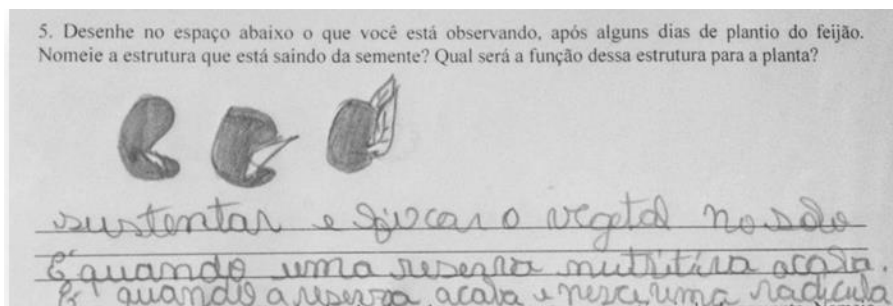 5. Desenhe no espaço abaixo o que você está observando, após alguns dias de plantio do feijão.
Nomeie a estrutura que está saindo da semente? Qual será a função dessa estrutura para a planta?
sustentar e ficar o vegetal no solo
É quando uma reserva nutritiva acaba.
É quando a reserva acaba e nesce uma radicula